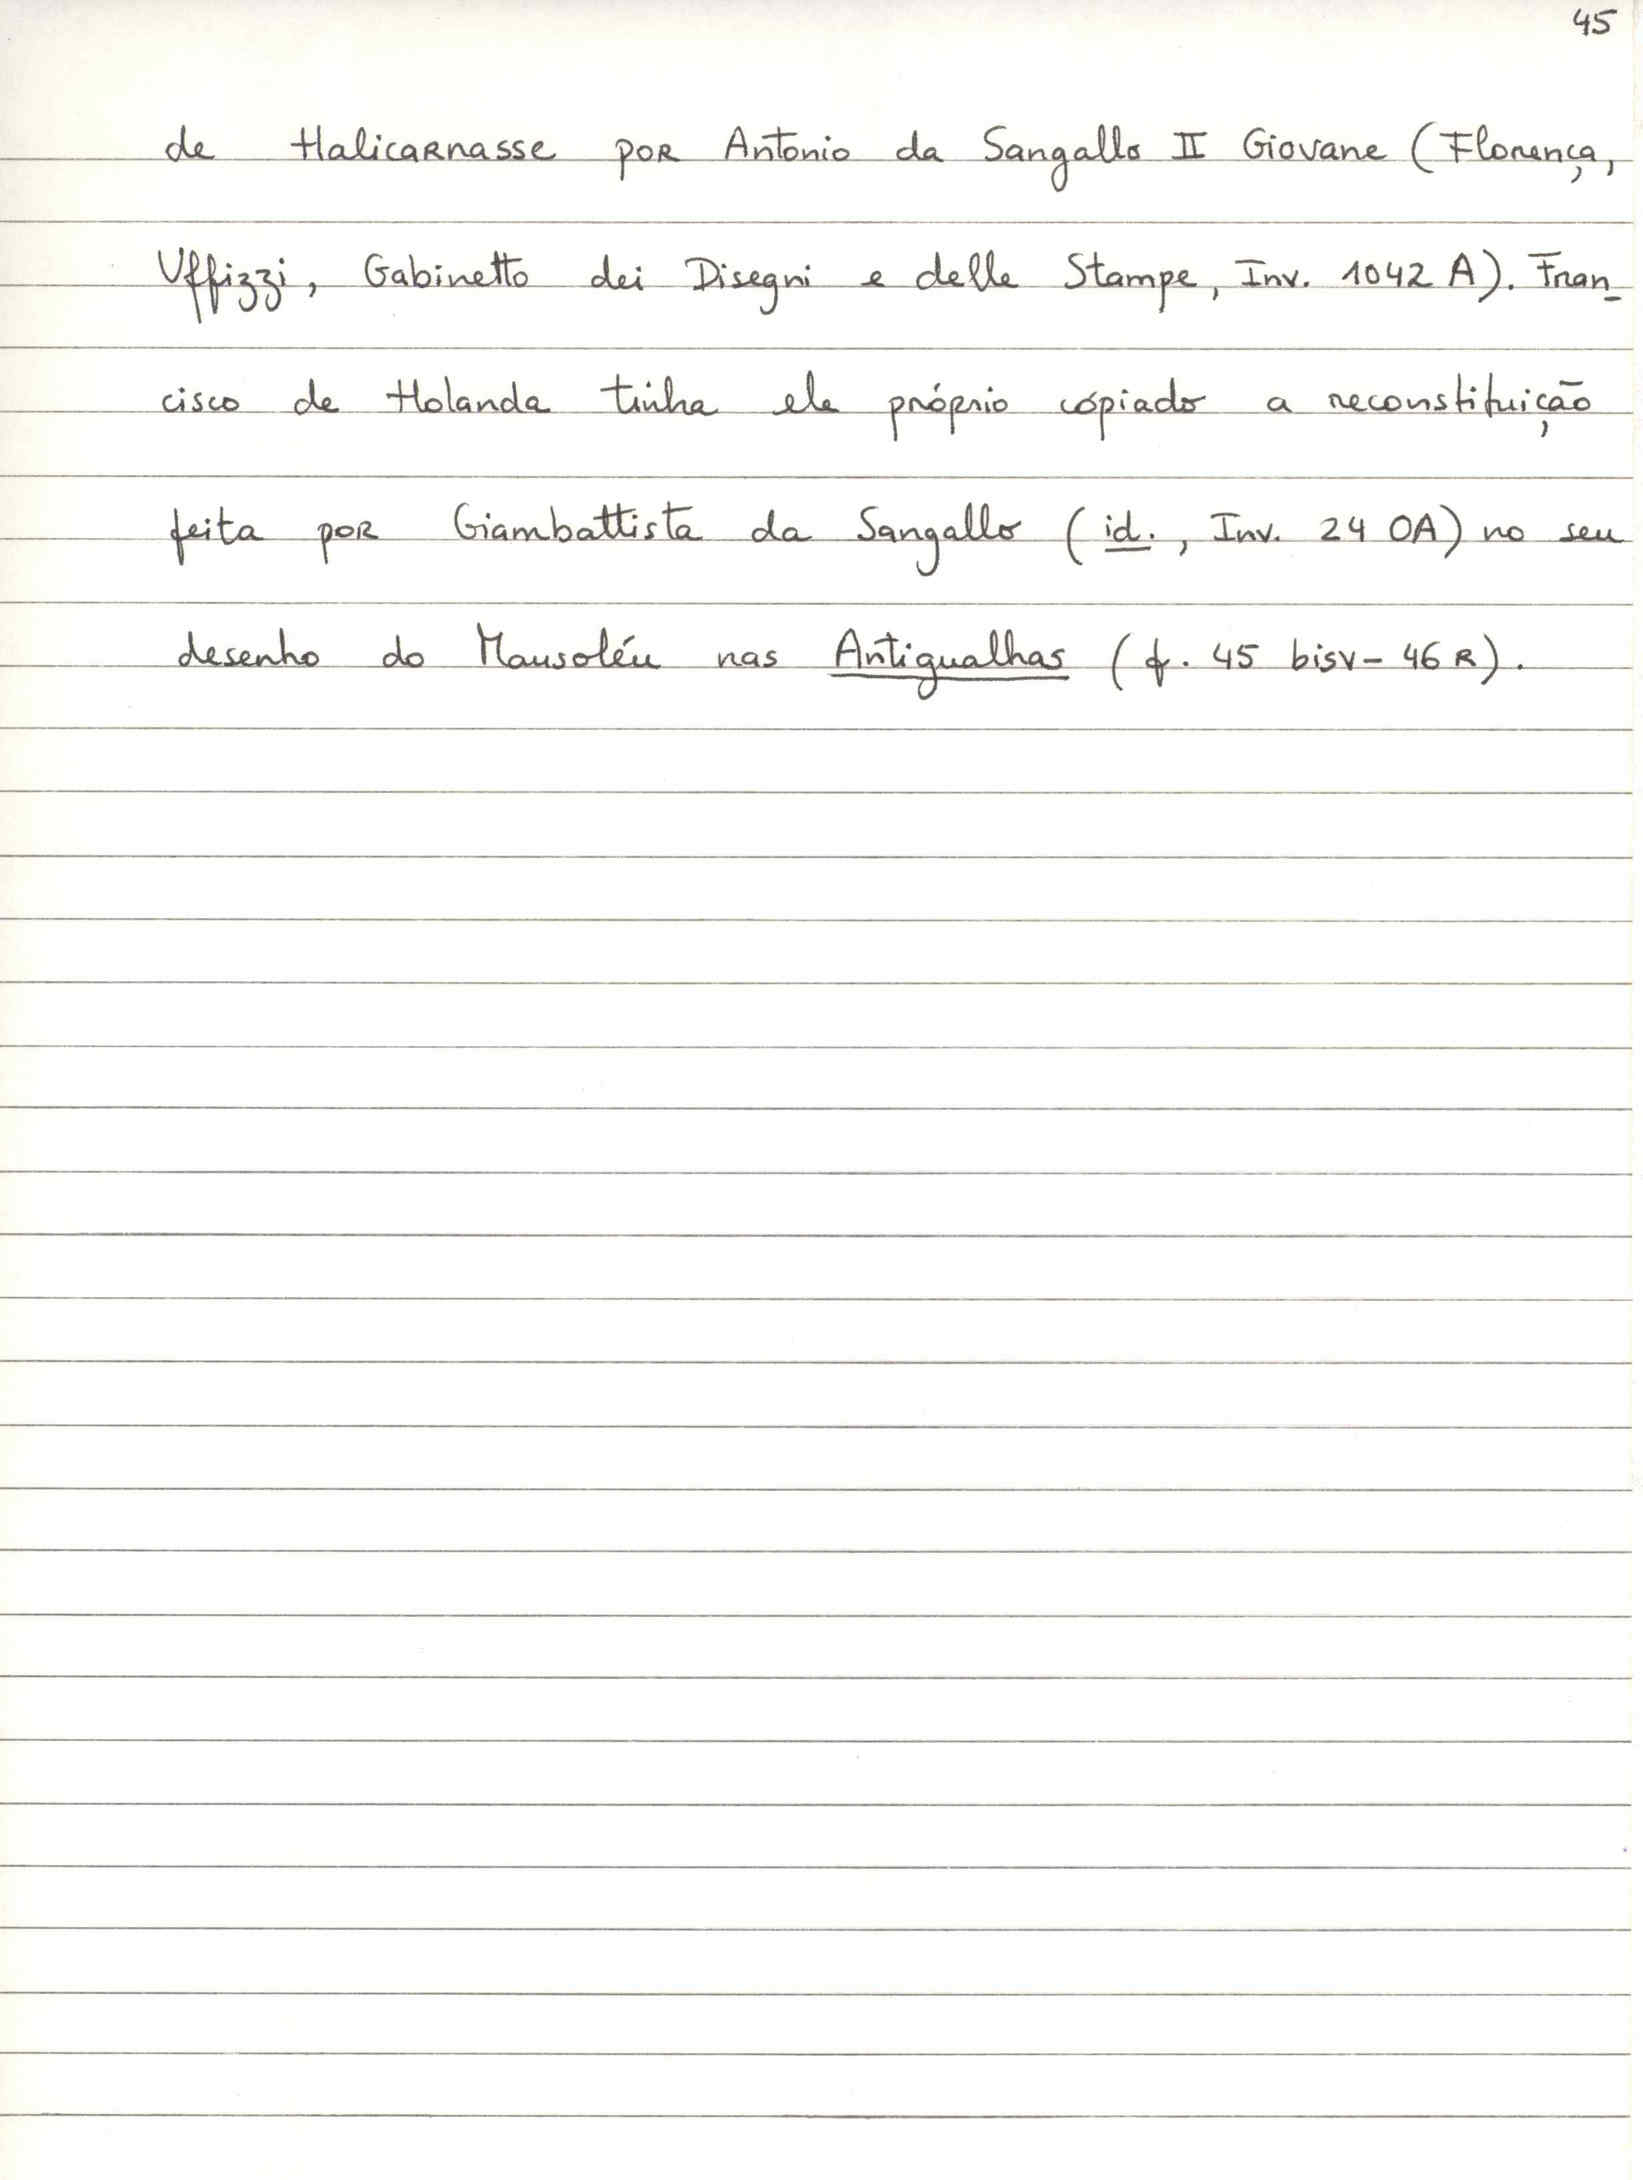 45
de Halicarnasse por Antonio da Sangallo II Giovane (Florença,
Uffizzi, Gabinetto dei Disegni e delle Stampe, Inv. 1042 A). Fran_
cisco de Holanda tinha ele próprio cópiado a reconstituição
feita por Giambattista da Sangallo (id., Inv. 24 OA) no seu
desenho do Mausoléu nas Antigualhas (f. 45 bisv - 46 R).